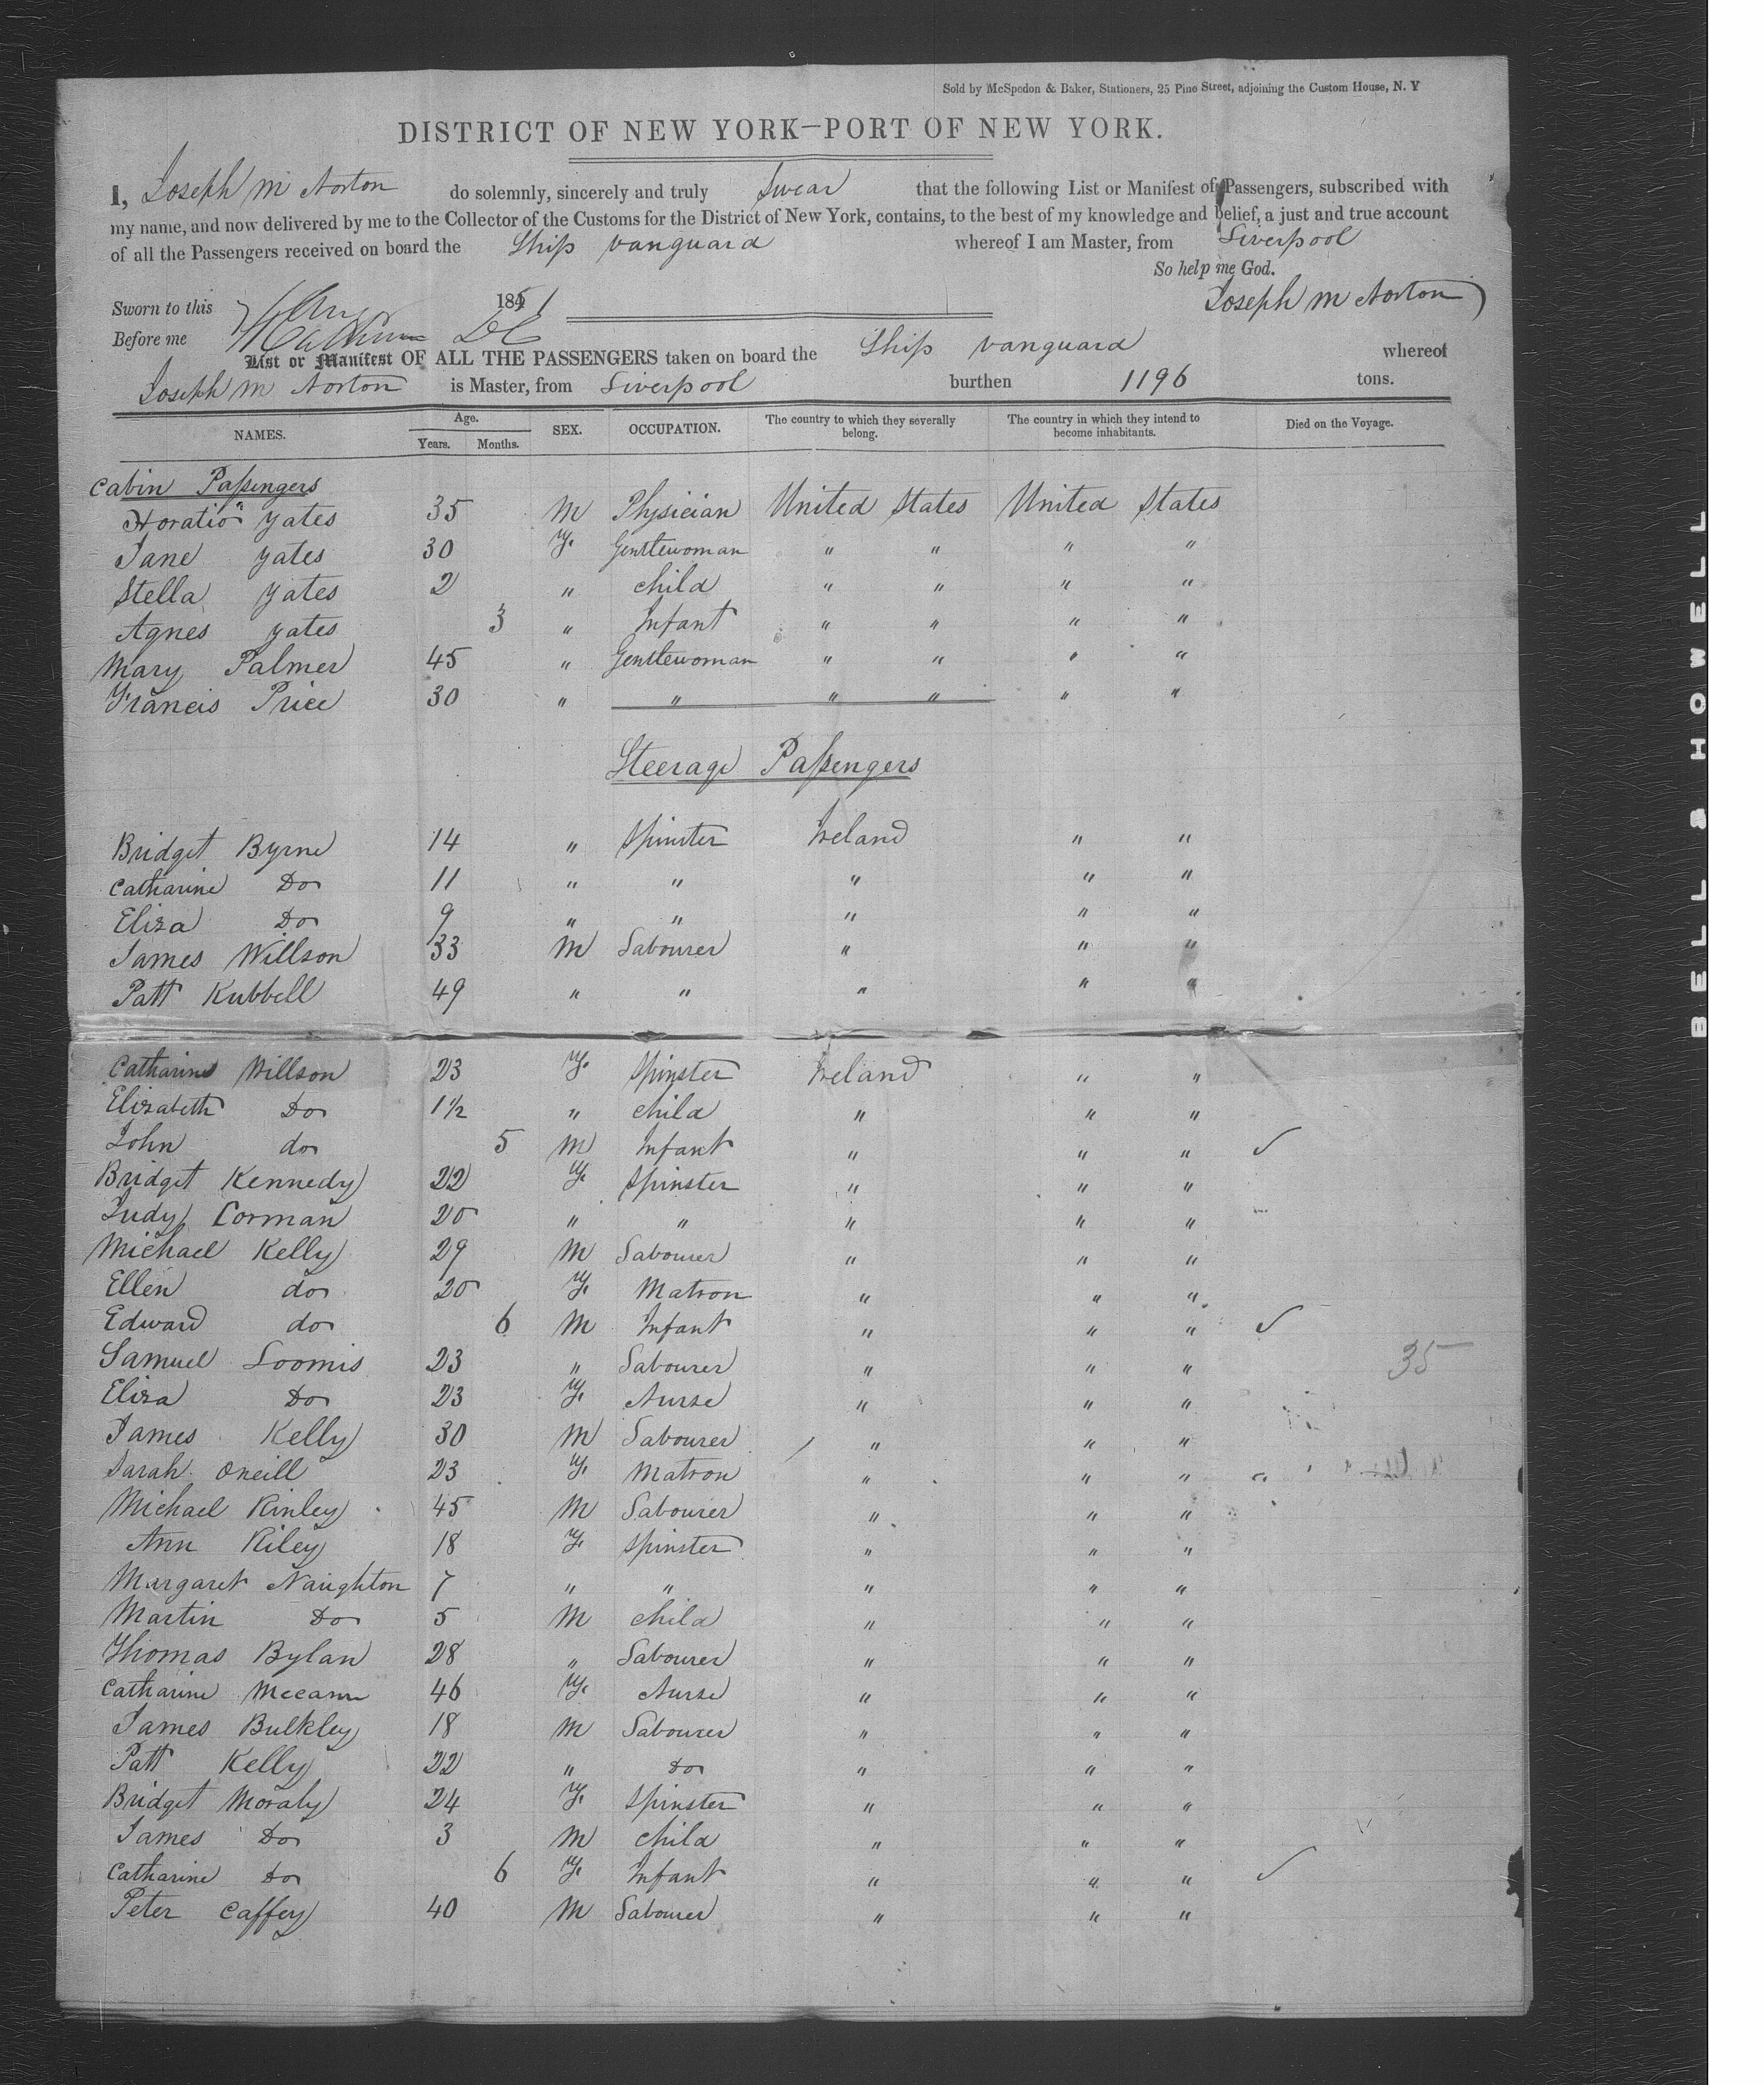 Sold by McSpedon & Baker, Stationers, 25 Pine Street, adjoining the Custom House, N. Y
DISTRICT OF NEW YORK—PORT OF NEW YORK.
I, Joseph M Norton do solemnly, sincerely and truly Swear that the following List or Manifest of Passengers, subscribed with
my name, and now delivered by me to the Collector of the Customs for the District of New York, contains, to the best of my knowledge and belief, a just and true account
of all the Passengers received on board the Ship Vanguard whereof I am Master, from Liverpool
So help me God.
Sworn to this 1851 Joseph M Norton
Before me
List or Manifest OF ALL THE PASSENGERS taken on board the Ship Vanguard whereof
Joseph M Norton is Master, from Liverpool burthen 1196 tons.
NAMES. Age. Years. Months. SEX. OCCUPATION. The country to which they severally belong. The country in which they intend to become inhabitants. Died on the Voyage.
Cabin Passengers
Horatio Yates 35 M Physician United States United States
Jane Yates 30 F. Gentlewoman " " " "
Stella Yates 2 " child " " " "
Agnes Yates 3 " Infant " " " "
Mary Palmer 45 " Gentlewoman " " " "
Francis Price 30 " " " " " "
Steerage Passengers
Bridget Byrne 14 " Spinster Ireland " "
Catharine Do 11 " " " " "
Eliza Do 9 " " " " "
James Willson 33 M Labourer " " "
Patt Kubbell 49 " " " " "
Catharine Willson 23 F. Spinster Ireland " "
Elizabeth Do 1½ " child " " "
John do 5 M Infant " " " ✓
Bridget Kennedy 22 F. Spinster " " "
Judy Corman 20 " " " " "
Michael Kelly 29 M Labourer " " "
Ellen do 20 F. Matron " " "
Edward do 6 M Infant " " " ✓
Samuel Loomis 23 " Labourer " " " 35
Eliza Do 23 F. Nurse " " "
James Kelly 30 M Labourer " " "
Sarah Oneill 23 F. Matron " " "
Michael Rinley 45 M Labourer " " "
Ann Riley 18 F. Spinster " " "
Margaret Naughton 7 " " " " "
Martin Do 5 M child " " "
Thomas Bylan 28 " Labourer " " "
Catharine Mccann 46 F. Nurse " " "
James Bulkley 18 M Labourer " " "
Patt Kelly 22 " Do " " "
Bridget Moraly 24 F. Spinster " " "
James Do 3 M child " " "
Catharine Do 6 F. Infant " " " ✓
Peter Caffey 40 M Labourer " " "
BELL & HOWELL